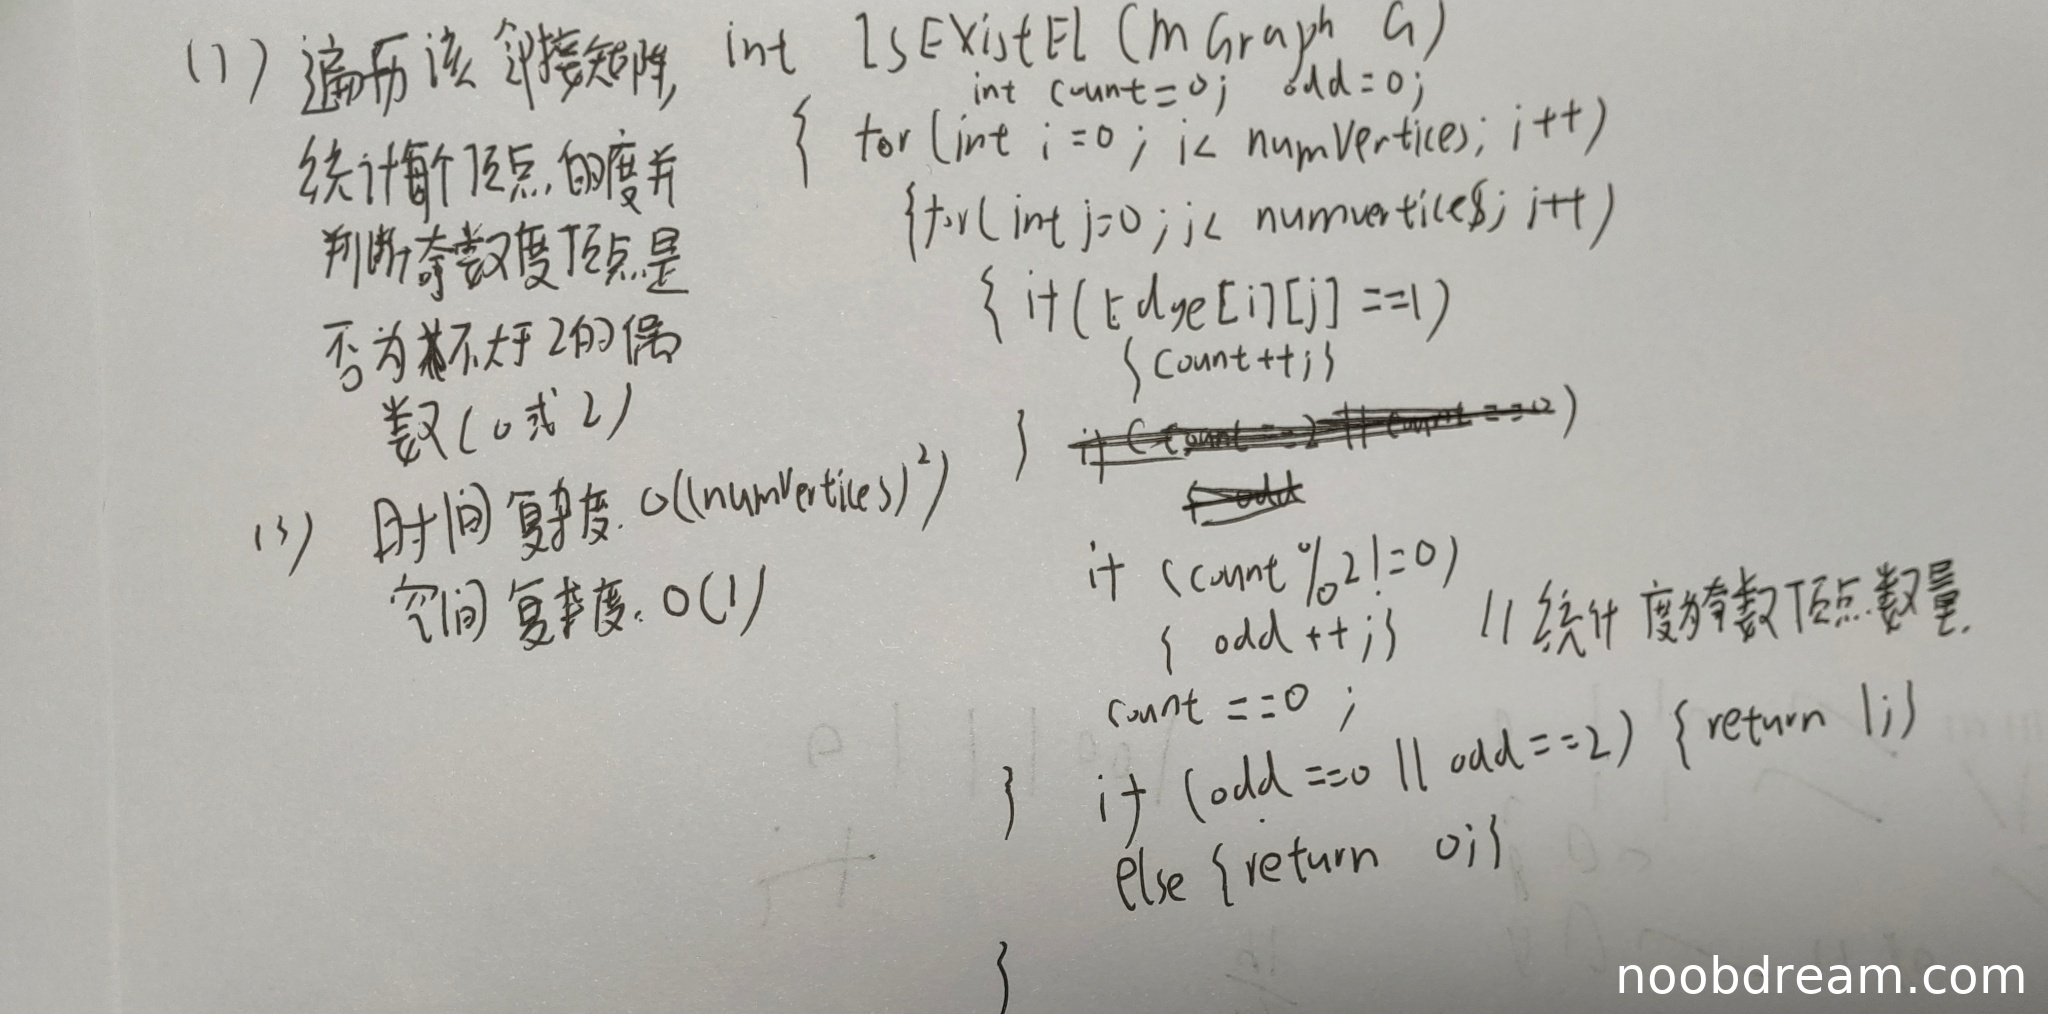 (1) 遍历该邻接矩阵,
统计每个顶点的度并
判断奇数度顶点是
否为不大于2的偶
数(0或2)
(3) 时间复杂度.O((numVertices)²)
空间复杂度.O(1)
int IsExistEL (MGraph G)
int count=0; odd=0;
{ for (int i=0; i< numVertices; i++)
{for(int j=0; j< numvertices; j++)
{ if(Edge[i][j]==1)
{count++;}
}
if (count%2!=0)
{ odd++;} //统计度为奇数顶点数量.
count ==0 ;
} if (odd==0 || odd==2) {return 1;}
else {return 0;}
}
noobdream.com